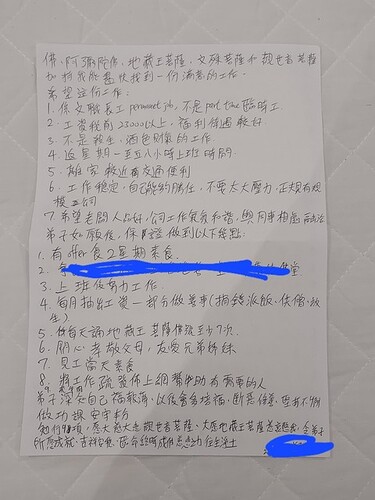 佛、阿彌陀佛、地藏王菩薩、文殊菩薩和觀世音菩薩
加持我能盡快找到一份滿意的工作。
希望這份工作:
1. 係文職長工 permanent job, 不是 part time 臨時工
2. 工資稅前 23000以上, 福利待遇較好
3. 不是殺生、酒色財氣的工作.
4. 返星期一至五八小時上班時間
5. 離家較近而交通便利
6. 工作穩定, 自己能夠勝任, 不要太大壓力, 正規有規
模公司
7. 希望老闆人品好, 公司工作氣氛和諧, 與同事相處融洽
弟子如願後, 保證做到以下幾點:
1. 有 offer 食2星期素食.
2.
3. 上班後努力工作.
4. 每月抽出工資一部分做善事(捐錢派飯、供僧、放
生)
5. 每天誦地藏王菩薩佛號至少7次.
6. 用心孝敬父母, 友愛兄弟姊妹
7. 見工當天素食
8. 將工作疏發佈上網幫助有需要的人
弟子深知自己福報淺, 以後會多培福, 斷惡修善,
做功課 安守本份
大慈大悲觀世音菩薩、大願地藏王菩薩
所願成就